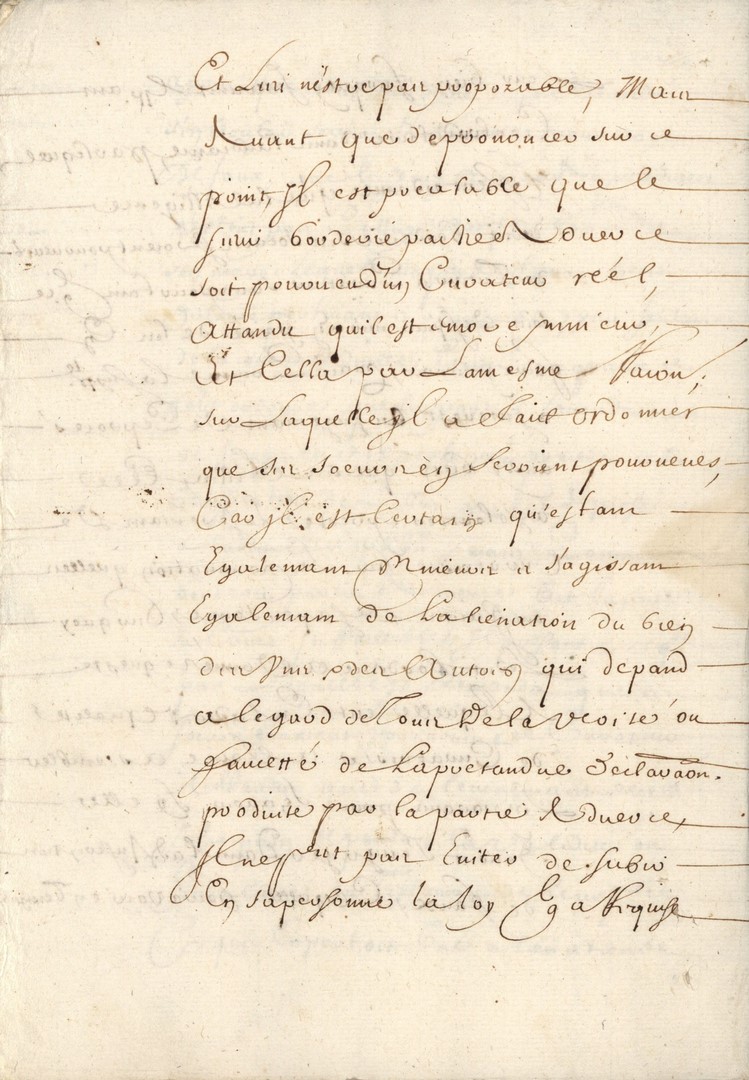 Et Luri n'estre pas proposable, Mais
Avant que de prononcer sur ce
point, Jl est prealable que le
surir borderie partie Adverce
soit pourveu d'un Curateur réel,
Attandu quil est encore mineur,
Et Cella par La mesme Raison,
sur Laquelle jl a esté ordonner
que ses soeures en seroient pourveues,
Car jl est Certain qu'estant
Egalement Mineurs et s'agissant
Egalement de L'alienation du bien
des Uns & des Autres qui depand
a legard de Tous de la verité ou
faucetté de La pretandue declaration
produite par la partie Adverce,
Jl ne peut pas Eviter de subir
En sa personne la loy